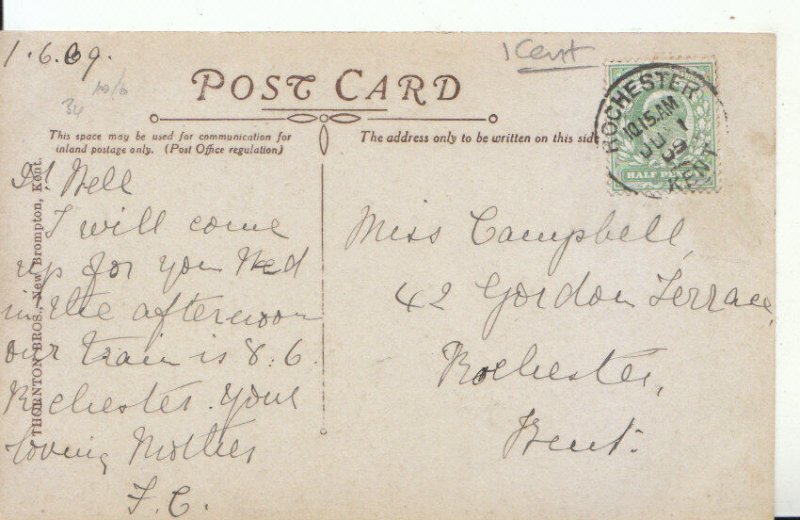 1.6.09.
1 Cent
34
POST CARD
This space may be used for communication for
inland postage only. (Post Office regulation)
The address only to be written on this side
ROCHESTER
10.15 AM
JU 1
09
KENT
HALF PENNY
Dr Nell
I will come
up for you Wed
in the afternoon
our train is 8.6.
Rochester. your
loving Mother
F.C.
Miss Campbell,
42 Gordon Terrace,
Rochester,
Kent.
THORNTON BROS., New Brompton, Kent.